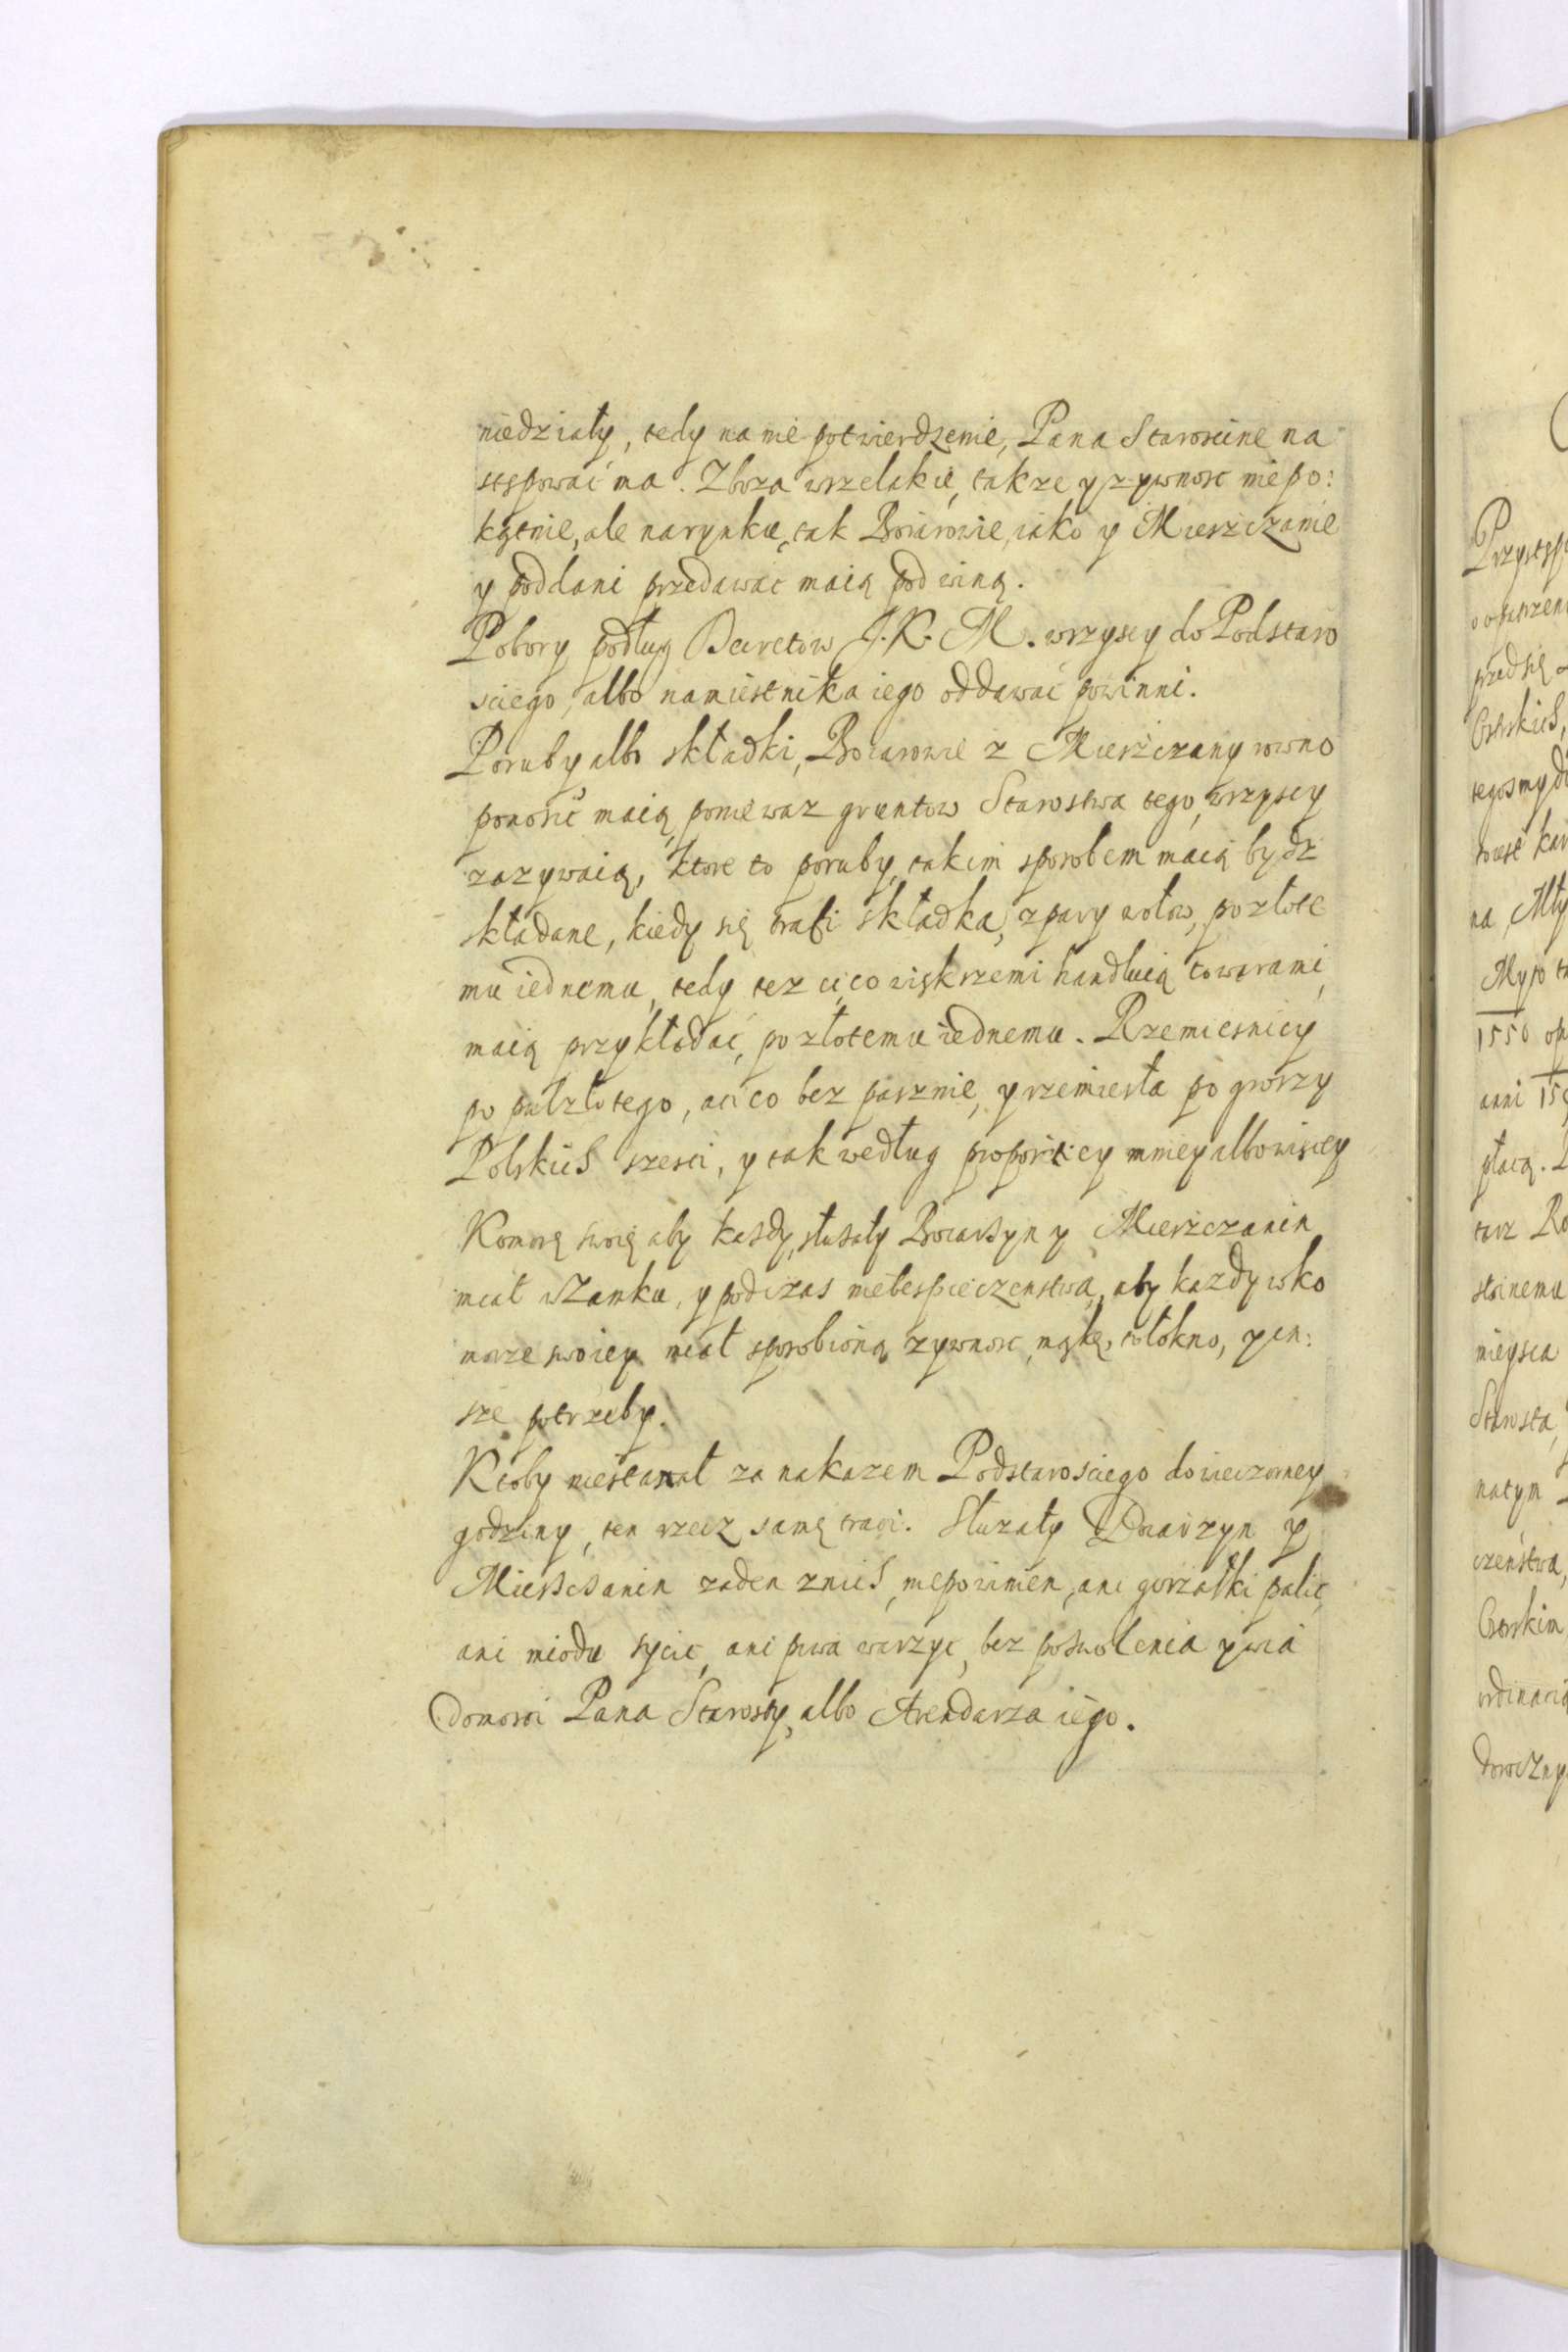 niedziały, tedy na nie potwierdzenie, Pana Starościne na
stępować ma. Zboza wszelakie, takze y zywnosc nie po:
kątnie, ale na rynku, tak Boiarowie, iako y Miesczanie
y poddani przedawać maią pod winą.
Pobory podług Decretow J. K. M. wszyscy do Podstaro
sciego, albo namiestnika iego oddawać powinni.
Poruby albo składki, Boiarowie z Miesczany rowno
ponosić maią, poniewaz gruntow Starostwa tego, wszyscy
zazywaią, ktore to poruby, takim sposobem maią bydz
składane, kiedy się trafi składka, z pary wołow, po złote
mu iednemu, tedy tez ci, co większemi handluią towarami,
maią przykładać, po złotemu iednemu. Rzemiesnicy
po pułzłotego, a ci co bez pasznie, y rzemiesła po groszy
Polskich szesci, y tak według proporcicy mniey albo więcey
Komorę swoię aby każdy, służały Boiarzyn y Miesczanin
miał w Zamku, y podczas niebespieczenstwa, aby kazdy w ko
morze swoiey miał sposobioną zywnosc, mąkę, tołokno, y in:
sze potrzeby.
Ktoby niestanał za nakazem Podstarosciego do wieczorney
godziny, ten rzecz samę traci. Służały Boiarzyn y
Miesczanin zaden z nich, niepowinien, ani gorzałki palić,
ani miodu sycić, ani piwa warzyć, bez pozwolenia y wia
domosci Pana Starosty, albo Arendarza iego.
na
1550
anni